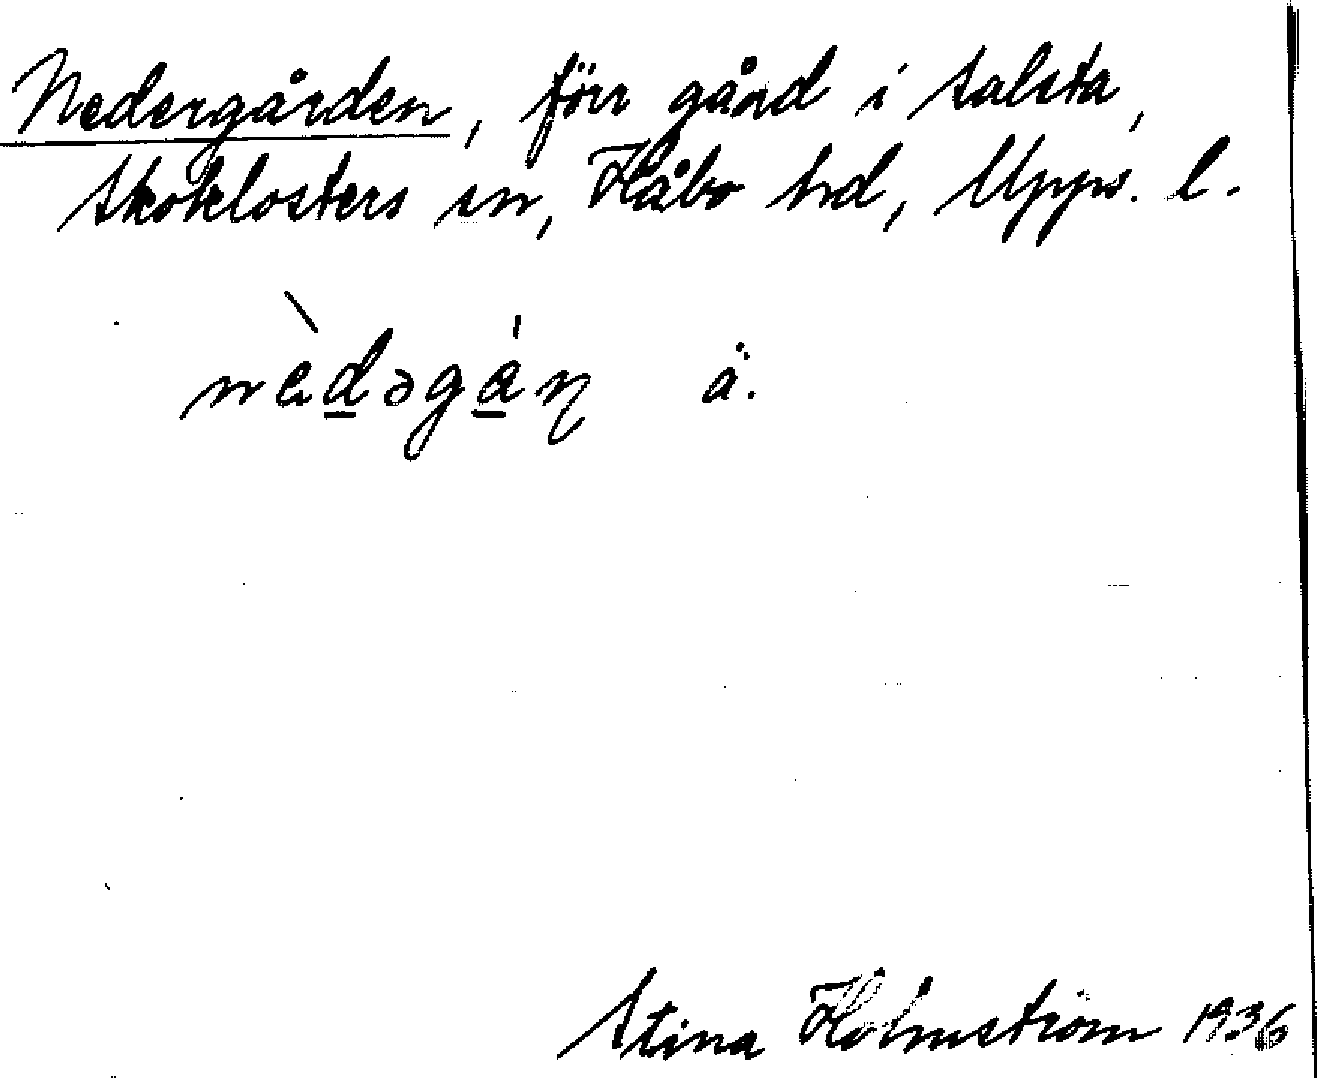 Nedergården, förr gård i Salsta,
Skoklosters sn, Håbo hd, Upps. l.
nèdəgáɳ ä.
Stina Holmström 1936